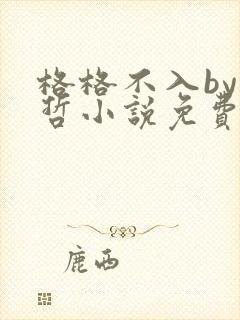 格格不入by
哲小說免費
鹿西